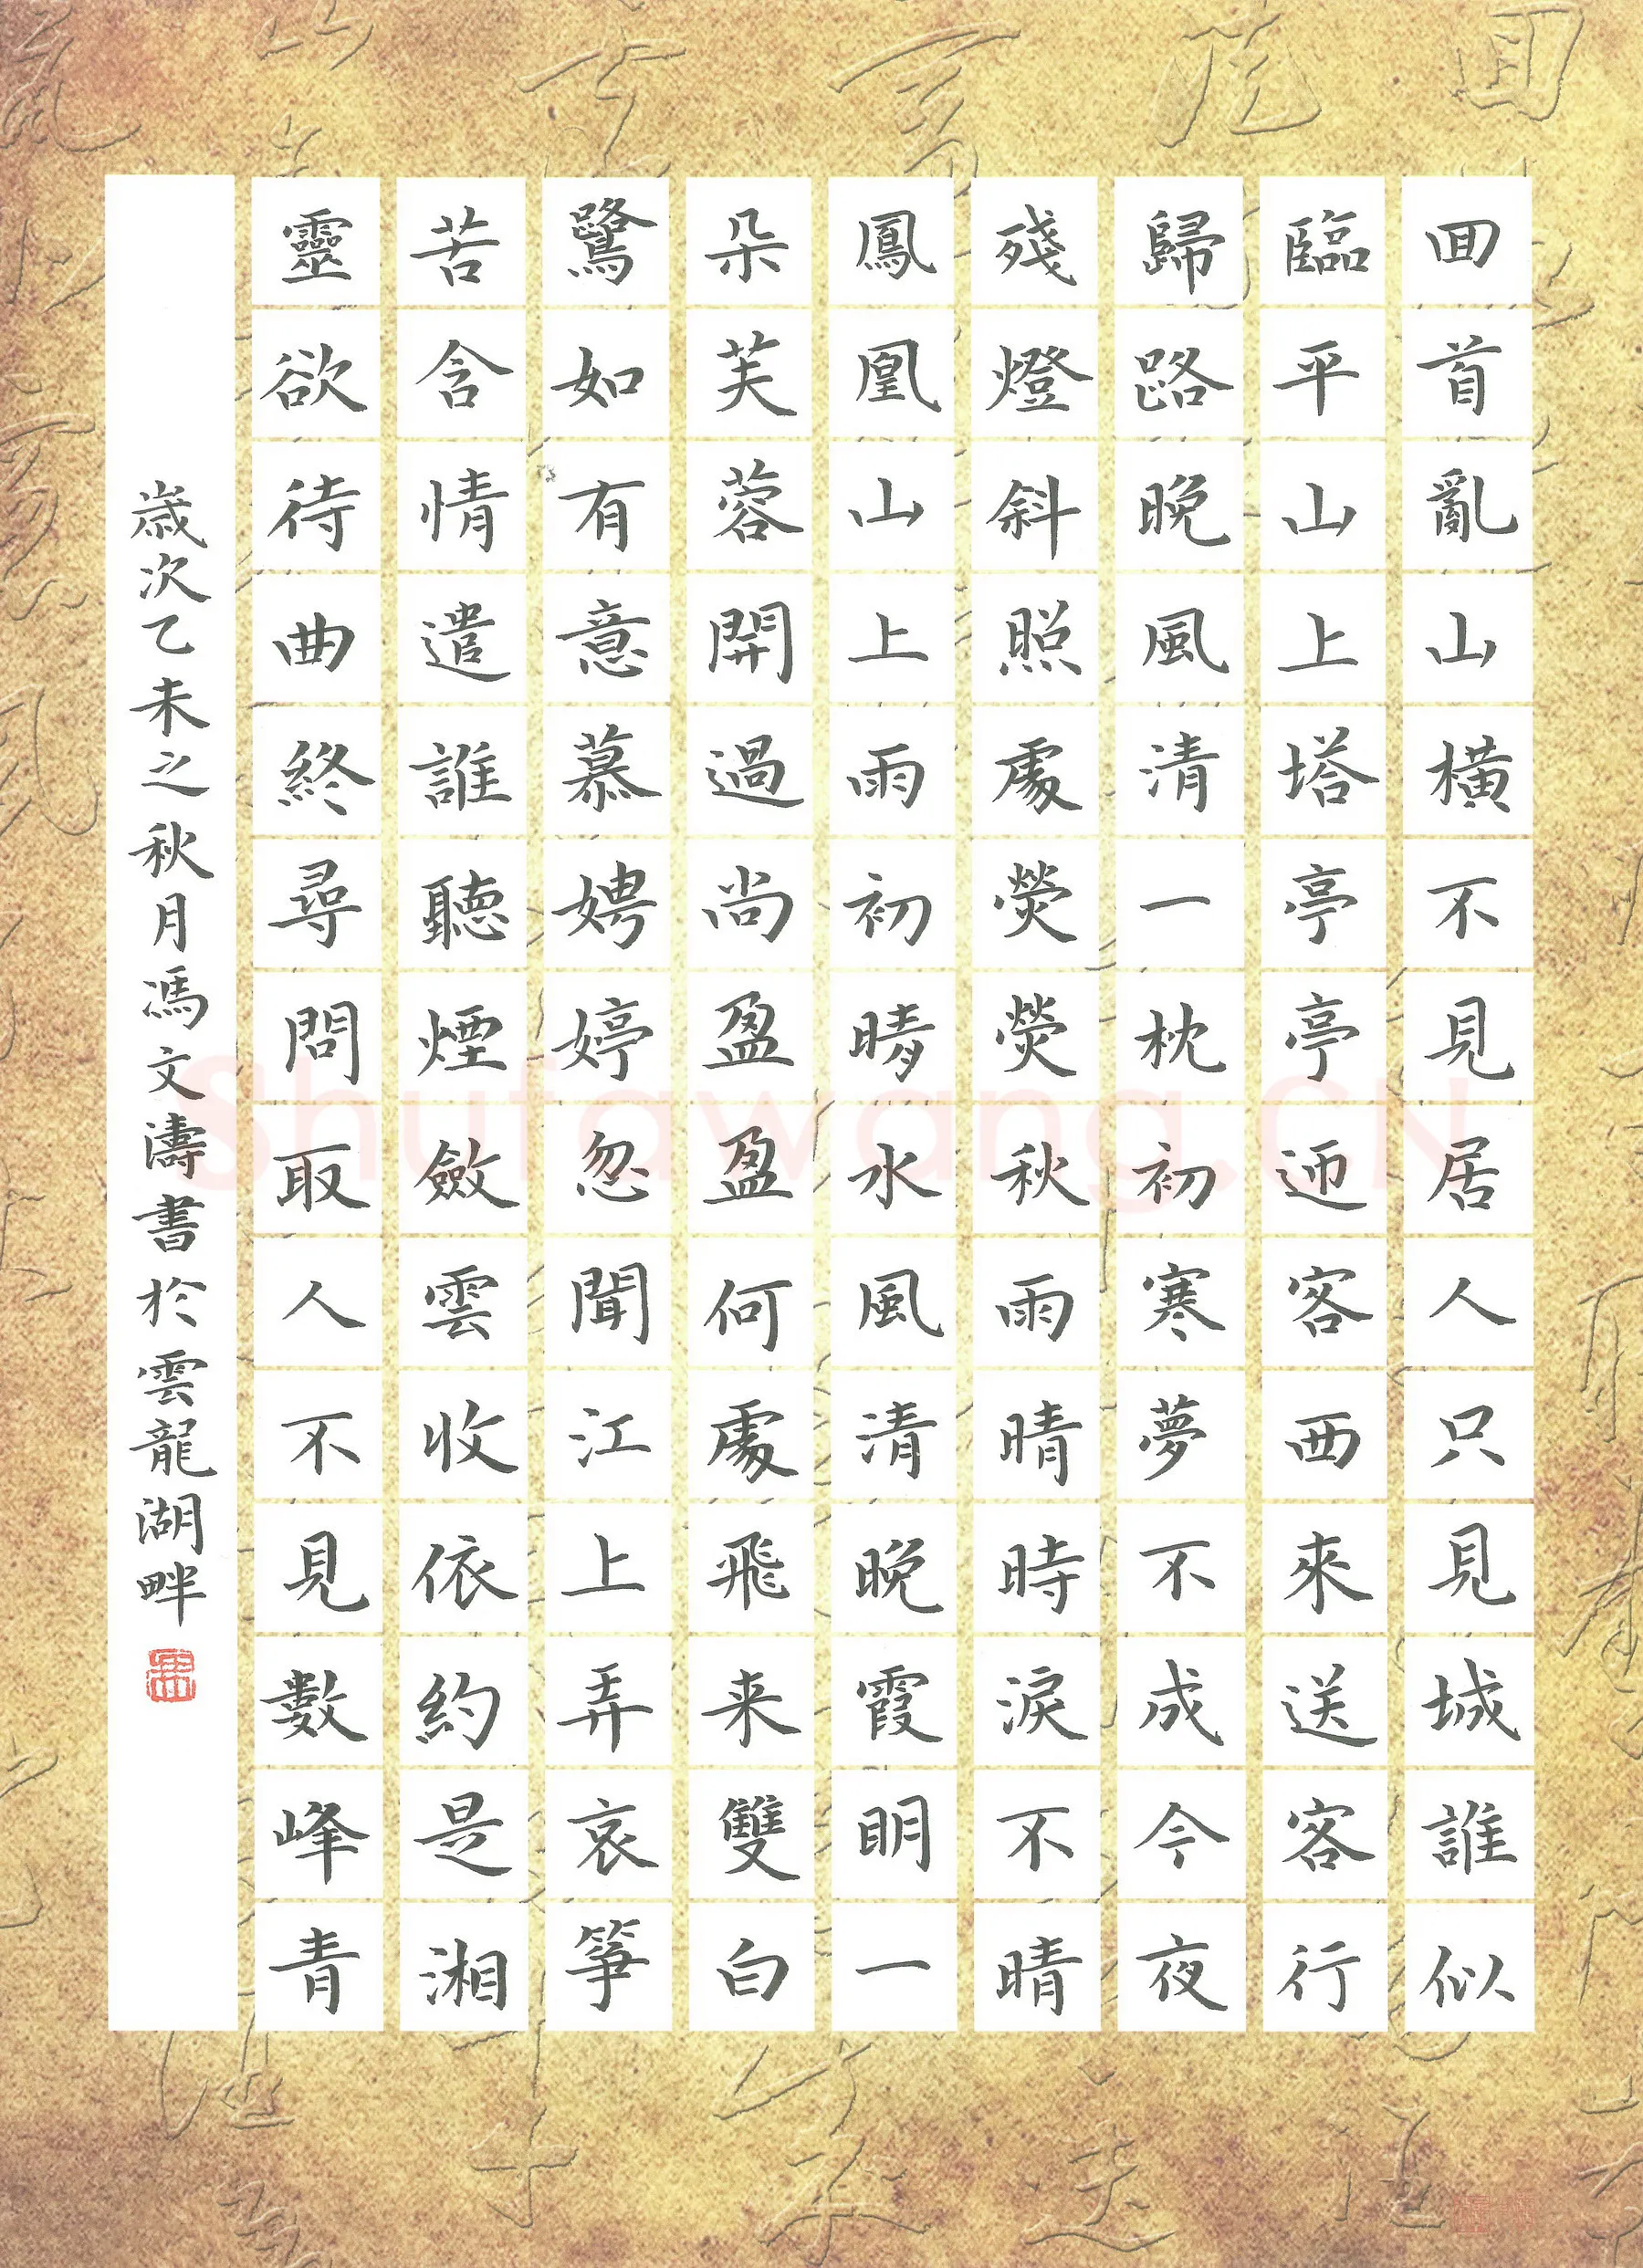 回首亂山橫不見居人只見城誰似
臨平山上塔亭亭迎客西來送客行
歸路晚風清一枕初寒夢不成今夜
殘燈斜照處熒熒秋雨晴時淚不晴
鳳凰山上雨初晴水風清晚霞明一
朵芙蓉開過尚盈盈何處飛来雙白
鷺如有意慕娉婷忽聞江上弄哀箏
苦含情遣誰聽煙斂雲收依約是湘
靈欲待曲終尋問取人不見數峰青
歲次乙未之秋月馮文濤書於雲龍湖畔
Shufawang.CN